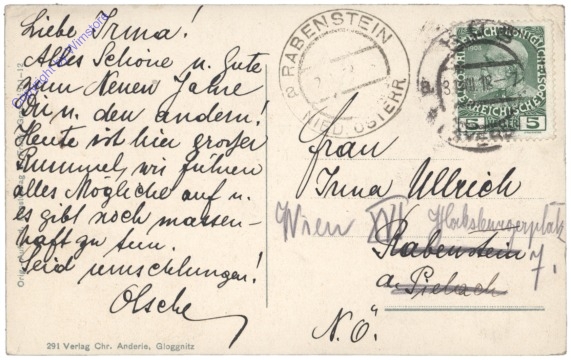 Liebe Irma!
Alles Schöne u. Gute
zum Neuen Jahre
Dir u. den andern!
Heute ist hier großer
Rummel, wir führen
alles Mögliche auf u.
es gibt noch massen-
haft zu tun.
Seid umschlungen!
Olsche
291 Verlag Chr. Anderle, Gloggnitz
RABENSTEIN
NIED. ÖSTERR.
5 5
Frau
Irma Ullrich
Wien XVI Habsburgerplatz
7.
Rabenstein
a. Pielach
N.Ö.
Copyright by Wimstore